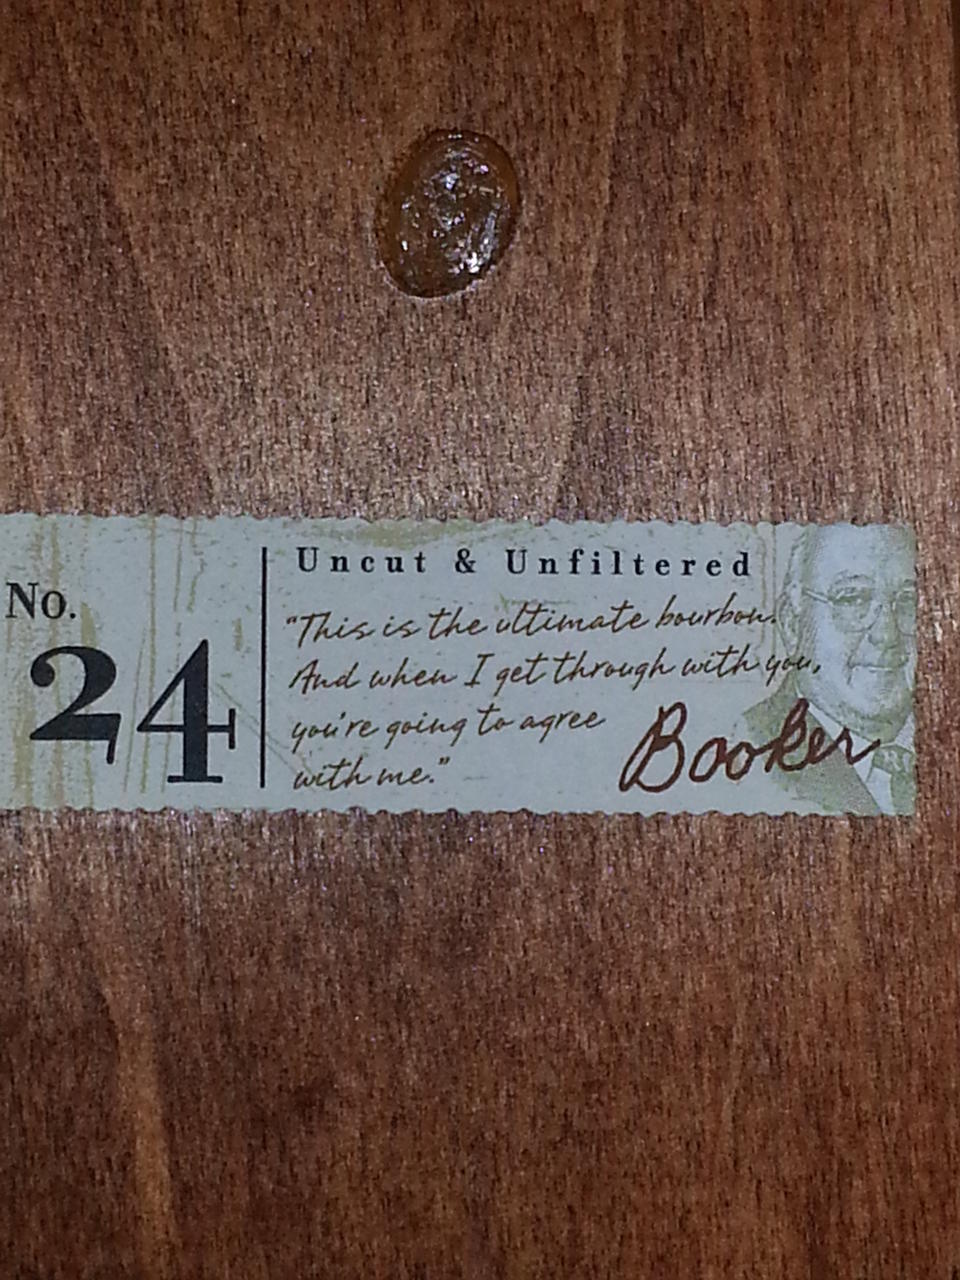 No.
24
Uncut & Unfiltered
"This is the ultimate bourbon.
And when I get through with you,
you're going to agree
with me."
Booker